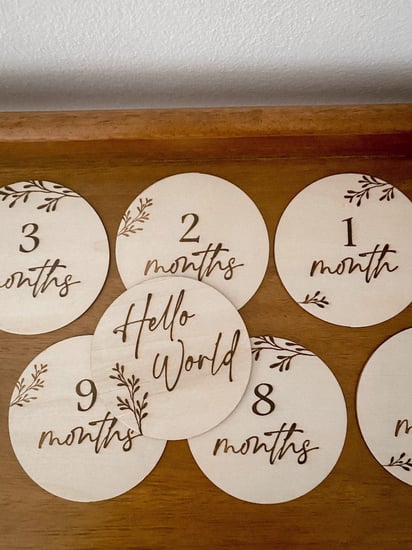 3
months
2
months
1
month
Hello
World
9
months
8
months